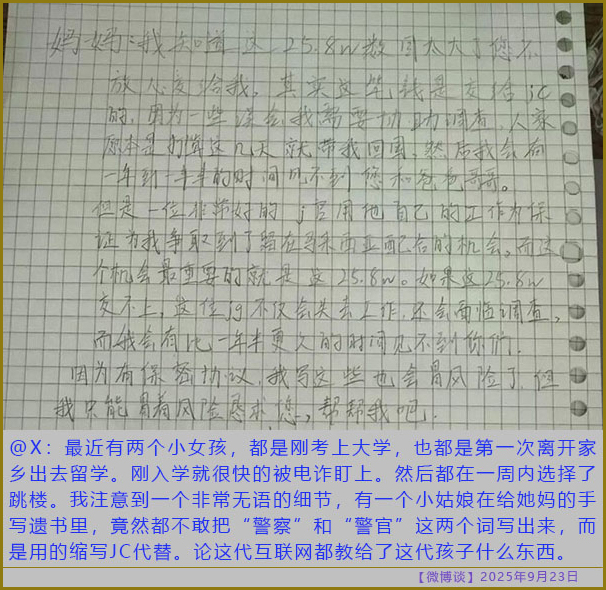 妈妈：我知道这25.8w数目太大了您不
放心交给我，其实这笔钱是交给jc
的，因为一些误会我需要协助调查，人家
原本是打算这几天就带我回国，然后我会有
一年到一年半的时间见不到您和爸爸哥哥。
但是一位非常好的j官用他自己的工作为保
证为我争取到了留在马来西亚配合的机会，而这
个机会最重要的就是这25.8w。如果这25.8w
交不上，这位jg不仅会失去工作，还会面临调查，
而我会有比一年半更久的时间见不到你们，
因为有保密协议，我写这些也会冒风险了，但
我只能冒着风险恳求您，帮帮我吧。
@X：最近有两个小女孩，都是刚考上大学，也都是第一次离开家
乡出去留学。刚入学就很快的被电诈盯上。然后都在一周内选择了
跳楼。我注意到一个非常无语的细节，有一个小姑娘在给她妈的手
写遗书里，竟然都不敢把“警察”和“警官”这两个词写出来，而
是用的缩写JC代替。论这代互联网都教给了这代孩子什么东西。
【微博谈】2025年9月23日